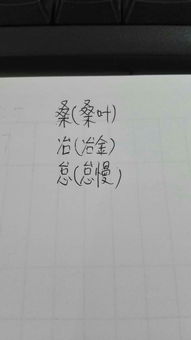 桑(桑叶)
冶(冶金)
怠(怠慢)